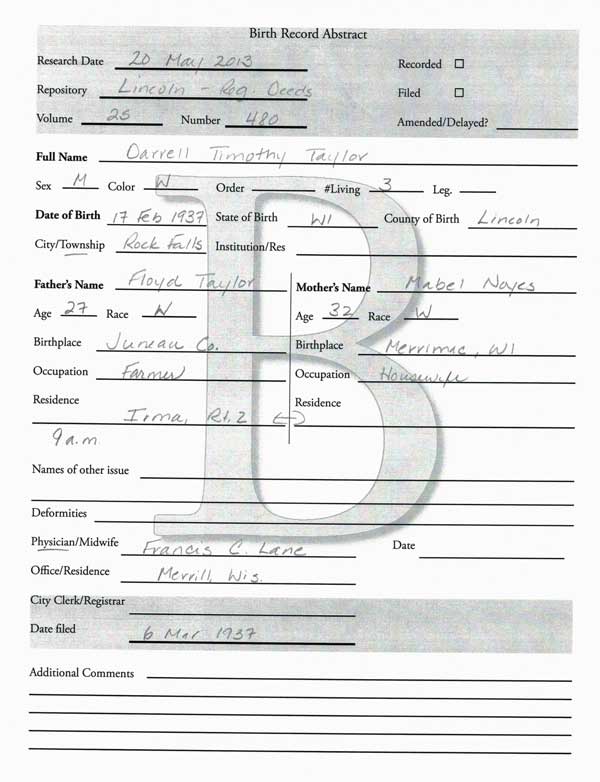 Birth Record Abstract
Research Date 20 May 2013 Recorded ☐
Repository Lincoln - Reg. Deeds Filed ☐
Volume 25 Number 480 Amended/Delayed?
Full Name Darrell Timothy Taylor
Sex M Color W Order #Living 3 Leg.
Date of Birth 17 Feb 1937 State of Birth WI County of Birth Lincoln
City/Township Rock Falls Institution/Res
Father's Name Floyd Taylor Mother's Name Mabel Noyes
Age 27 Race W Age 32 Race W
Birthplace Juneau Co. Birthplace Merrimac, WI
Occupation Farmer Occupation Housewife
Residence Residence
Irma, Rt. 2 ↔
9 a.m.
Names of other issue
Deformities
Physician/Midwife Francis C. Lane Date
Office/Residence Merrill, Wis.
City Clerk/Registrar
Date filed 6 Mar 1937
Additional Comments
B